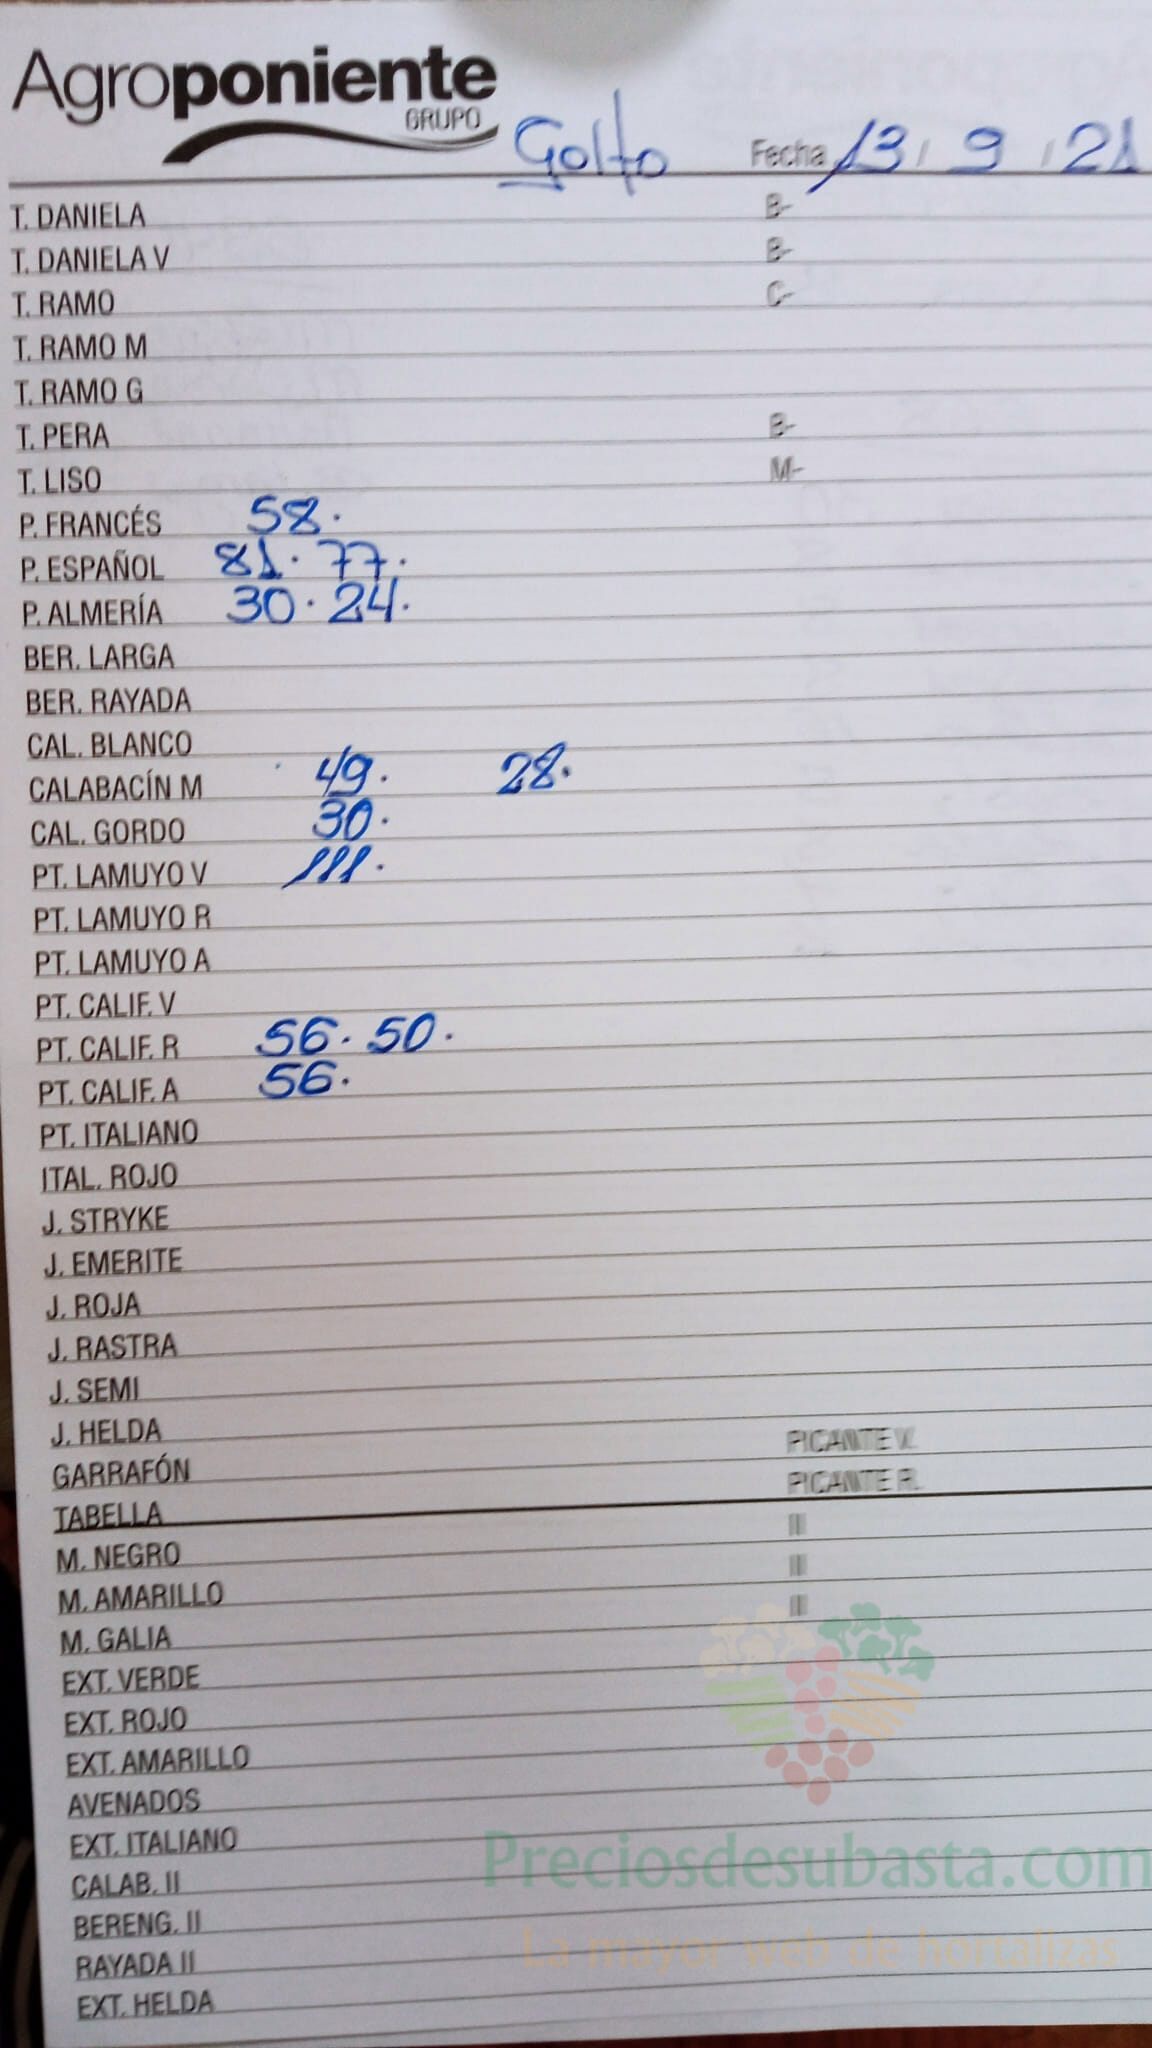 Agroponiente
GRUPO
Golfo Fecha 13 / 9 / 21
T. DANIELA B-
T. DANIELA V B-
T. RAMO C-
T. RAMO M
T. RAMO G
T. PERA B-
T. LISO M-
P. FRANCÉS 58.
P. ESPAÑOL 81. 77.
P. ALMERÍA 30. 24.
BER. LARGA
BER. RAYADA
CAL. BLANCO
CALABACÍN M 49. 28.
CAL. GORDO 30.
PT. LAMUYO V 111.
PT. LAMUYO R
PT. LAMUYO A
PT. CALIF. V
PT. CALIF. R 56. 50.
PT. CALIF. A 56.
PT. ITALIANO
ITAL. ROJO
J. STRYKE
J. EMERITE
J. ROJA
J. RASTRA
J. SEMI
J. HELDA PICANTE V.
GARRAFÓN PICANTE R.
TABELLA II
M. NEGRO II
M. AMARILLO II
M. GALIA
EXT. VERDE
EXT. ROJO
EXT. AMARILLO
AVENADOS
EXT. ITALIANO
CALAB. II
BERENG. II
RAYADA II
EXT. HELDA
Preciosdesubasta.com
La mayor web de hortalizas